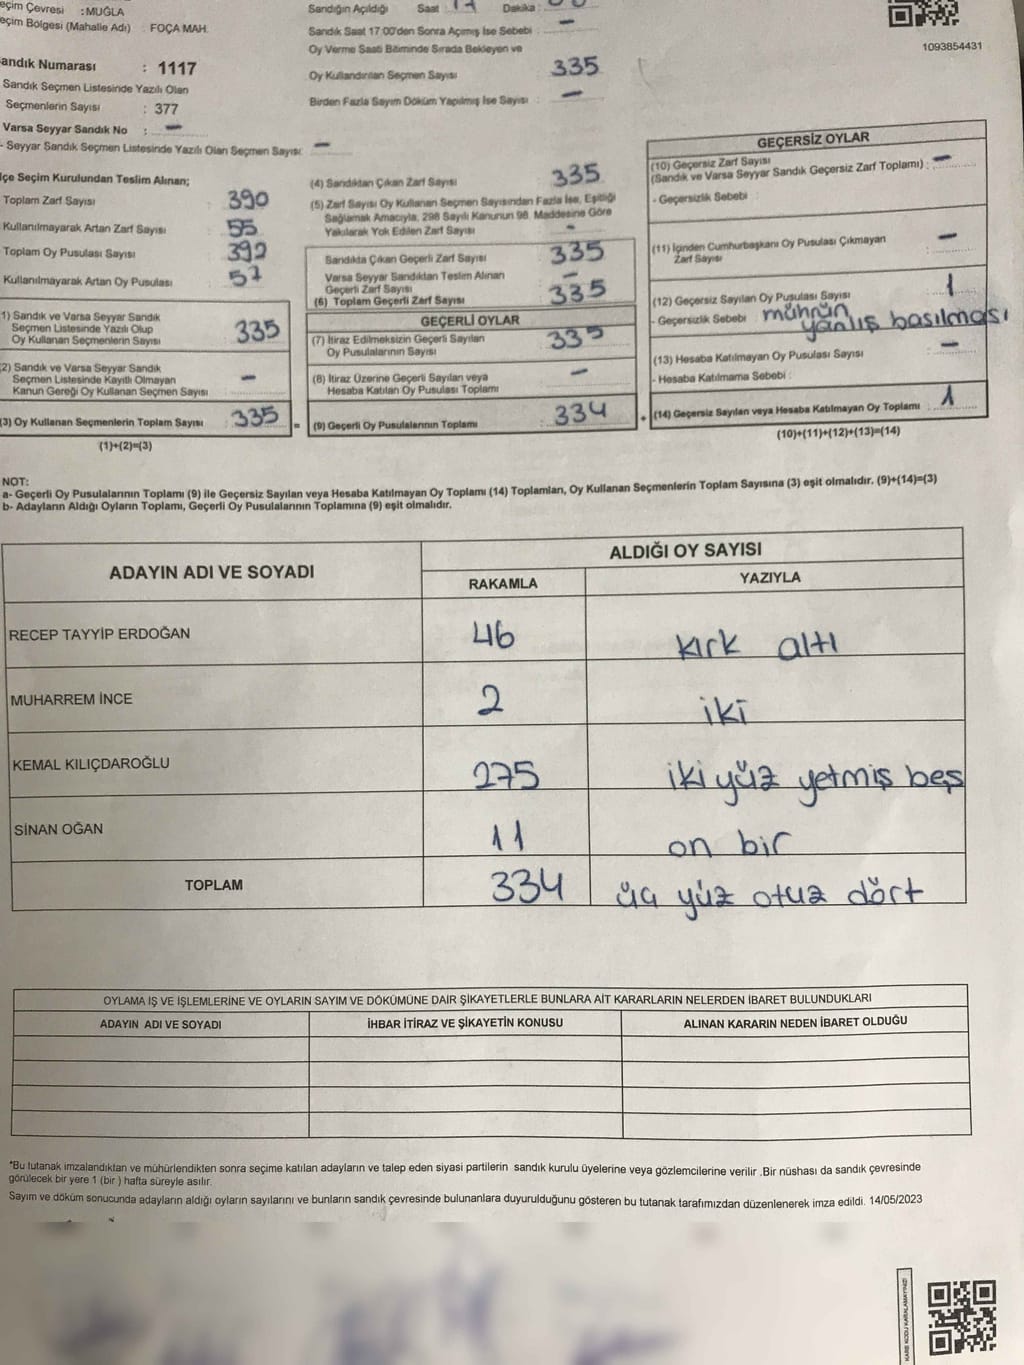 eçim Çevresi : MUĞLA
eçim Bölgesi (Mahalle Adı) : FOÇA MAH.
andık Numarası : 1117
Sandık Seçmen Listesinde Yazılı Olan
Seçmenlerin Sayısı : 377
Varsa Seyyar Sandık No : –
- Seyyar Sandık Seçmen Listesinde Yazılı Olan Seçmen Sayısı: –
Sandığın Açıldığı Saat : 17 Dakika :
Sandık Saat 17:00'den Sonra Açımış İse Sebebi : –
Oy Verme Saati Bitiminde Sırada Bekleyen ve
Oy Kullandırılan Seçmen Sayısı 335
Birden Fazla Sayım Döküm Yapılmış İse Sayısı : –
1093854431
lçe Seçim Kurulundan Teslim Alınan;
Toplam Zarf Sayısı : 390
Kullanılmayarak Artan Zarf Sayısı : 55
Toplam Oy Pusulası Sayısı : 392
Kullanılmayarak Artan Oy Pusulası : 57
1) Sandık ve Varsa Seyyar Sandık
Seçmen Listesinde Yazılı Olup
Oy Kullanan Seçmenlerin Sayısı 335
2) Sandık ve Varsa Seyyar Sandık
Seçmen Listesinde Kayıtlı Olmayan
Kanun Gereği Oy Kullanan Seçmen Sayısı –
(3) Oy Kullanan Seçmenlerin Toplam Sayısı : 335 =
(1)+(2)=(3)
(4) Sandıktan Çıkan Zarf Sayısı 335
(5) Zarf Sayısı Oy Kullanan Seçmen Sayısından Fazla İse, Eşitliği
Sağlamak Amacıyla, 298 Sayılı Kanunun 98. Maddesine Göre
Yakılarak Yok Edilen Zarf Sayısı –
Sandıkta Çıkan Geçerli Zarf Sayısı 335
Varsa Seyyar Sandıktan Teslim Alınan
Geçerli Zarf Sayısı –
(6) Toplam Geçerli Zarf Sayısı 335
GEÇERLİ OYLAR
(7) İtiraz Edilmeksizin Geçerli Sayılan
Oy Pusulalarının Sayısı 335
(8) İtiraz Üzerine Geçerli Sayılan veya
Hesaba Katılan Oy Pusulası Toplamı –
(9) Geçerli Oy Pusulalarının Toplamı : 334 +
GEÇERSİZ OYLAR
(10) Geçersiz Zarf Sayısı
(Sandık ve Varsa Seyyar Sandık Geçersiz Zarf Toplamı) : –
- Geçersizlik Sebebi :
(11) İçinden Cumhurbaşkanı Oy Pusulası Çıkmayan
Zarf Sayısı –
(12) Geçersiz Sayılan Oy Pusulası Sayısı 1
- Geçersizlik Sebebi : mührün
yanlış basılması
(13) Hesaba Katılmayan Oy Pusulası Sayısı –
- Hesaba Katılmama Sebebi :
(14) Geçersiz Sayılan veya Hesaba Katılmayan Oy Toplamı : 1
(10)+(11)+(12)+(13)=(14)
NOT:
a- Geçerli Oy Pusulalarının Toplamı (9) ile Geçersiz Sayılan veya Hesaba Katılmayan Oy Toplamı (14) Toplamları, Oy Kullanan Seçmenlerin Toplam Sayısına (3) eşit olmalıdır. (9)+(14)=(3)
b- Adayların Aldığı Oyların Toplamı, Geçerli Oy Pusulalarının Toplamına (9) eşit olmalıdır.
ADAYIN ADI VE SOYADI ALDIĞI OY SAYISI
RAKAMLA YAZIYLA
RECEP TAYYİP ERDOĞAN 46 kırk altı
MUHARREM İNCE 2 iki
KEMAL KILIÇDAROĞLU 275 iki yüz yetmiş beş
SİNAN OĞAN 11 on bir
TOPLAM 334 üç yüz otuz dört
OYLAMA İŞ VE İŞLEMLERİNE VE OYLARIN SAYIM VE DÖKÜMÜNE DAİR ŞİKAYETLERLE BUNLARA AİT KARARLARIN NELERDEN İBARET BULUNDUKLARI
ADAYIN ADI VE SOYADI İHBAR İTİRAZ VE ŞİKAYETİN KONUSU ALINAN KARARIN NEDEN İBARET OLDUĞU
*Bu tutanak imzalandıktan ve mühürlendikten sonra seçime katılan adayların ve talep eden siyasi partilerin sandık kurulu üyelerine veya gözlemcilerine verilir .Bir nüshası da sandık çevresinde
görülecek bir yere 1 (bir ) hafta süreyle asılır.
Sayım ve döküm sonucunda adayların aldığı oyların sayılarını ve bunların sandık çevresinde bulunanlara duyurulduğunu gösteren bu tutanak tarafımızdan düzenlenerek imza edildi. 14/05/2023
KARE KODU KARALAMAYINIZ!